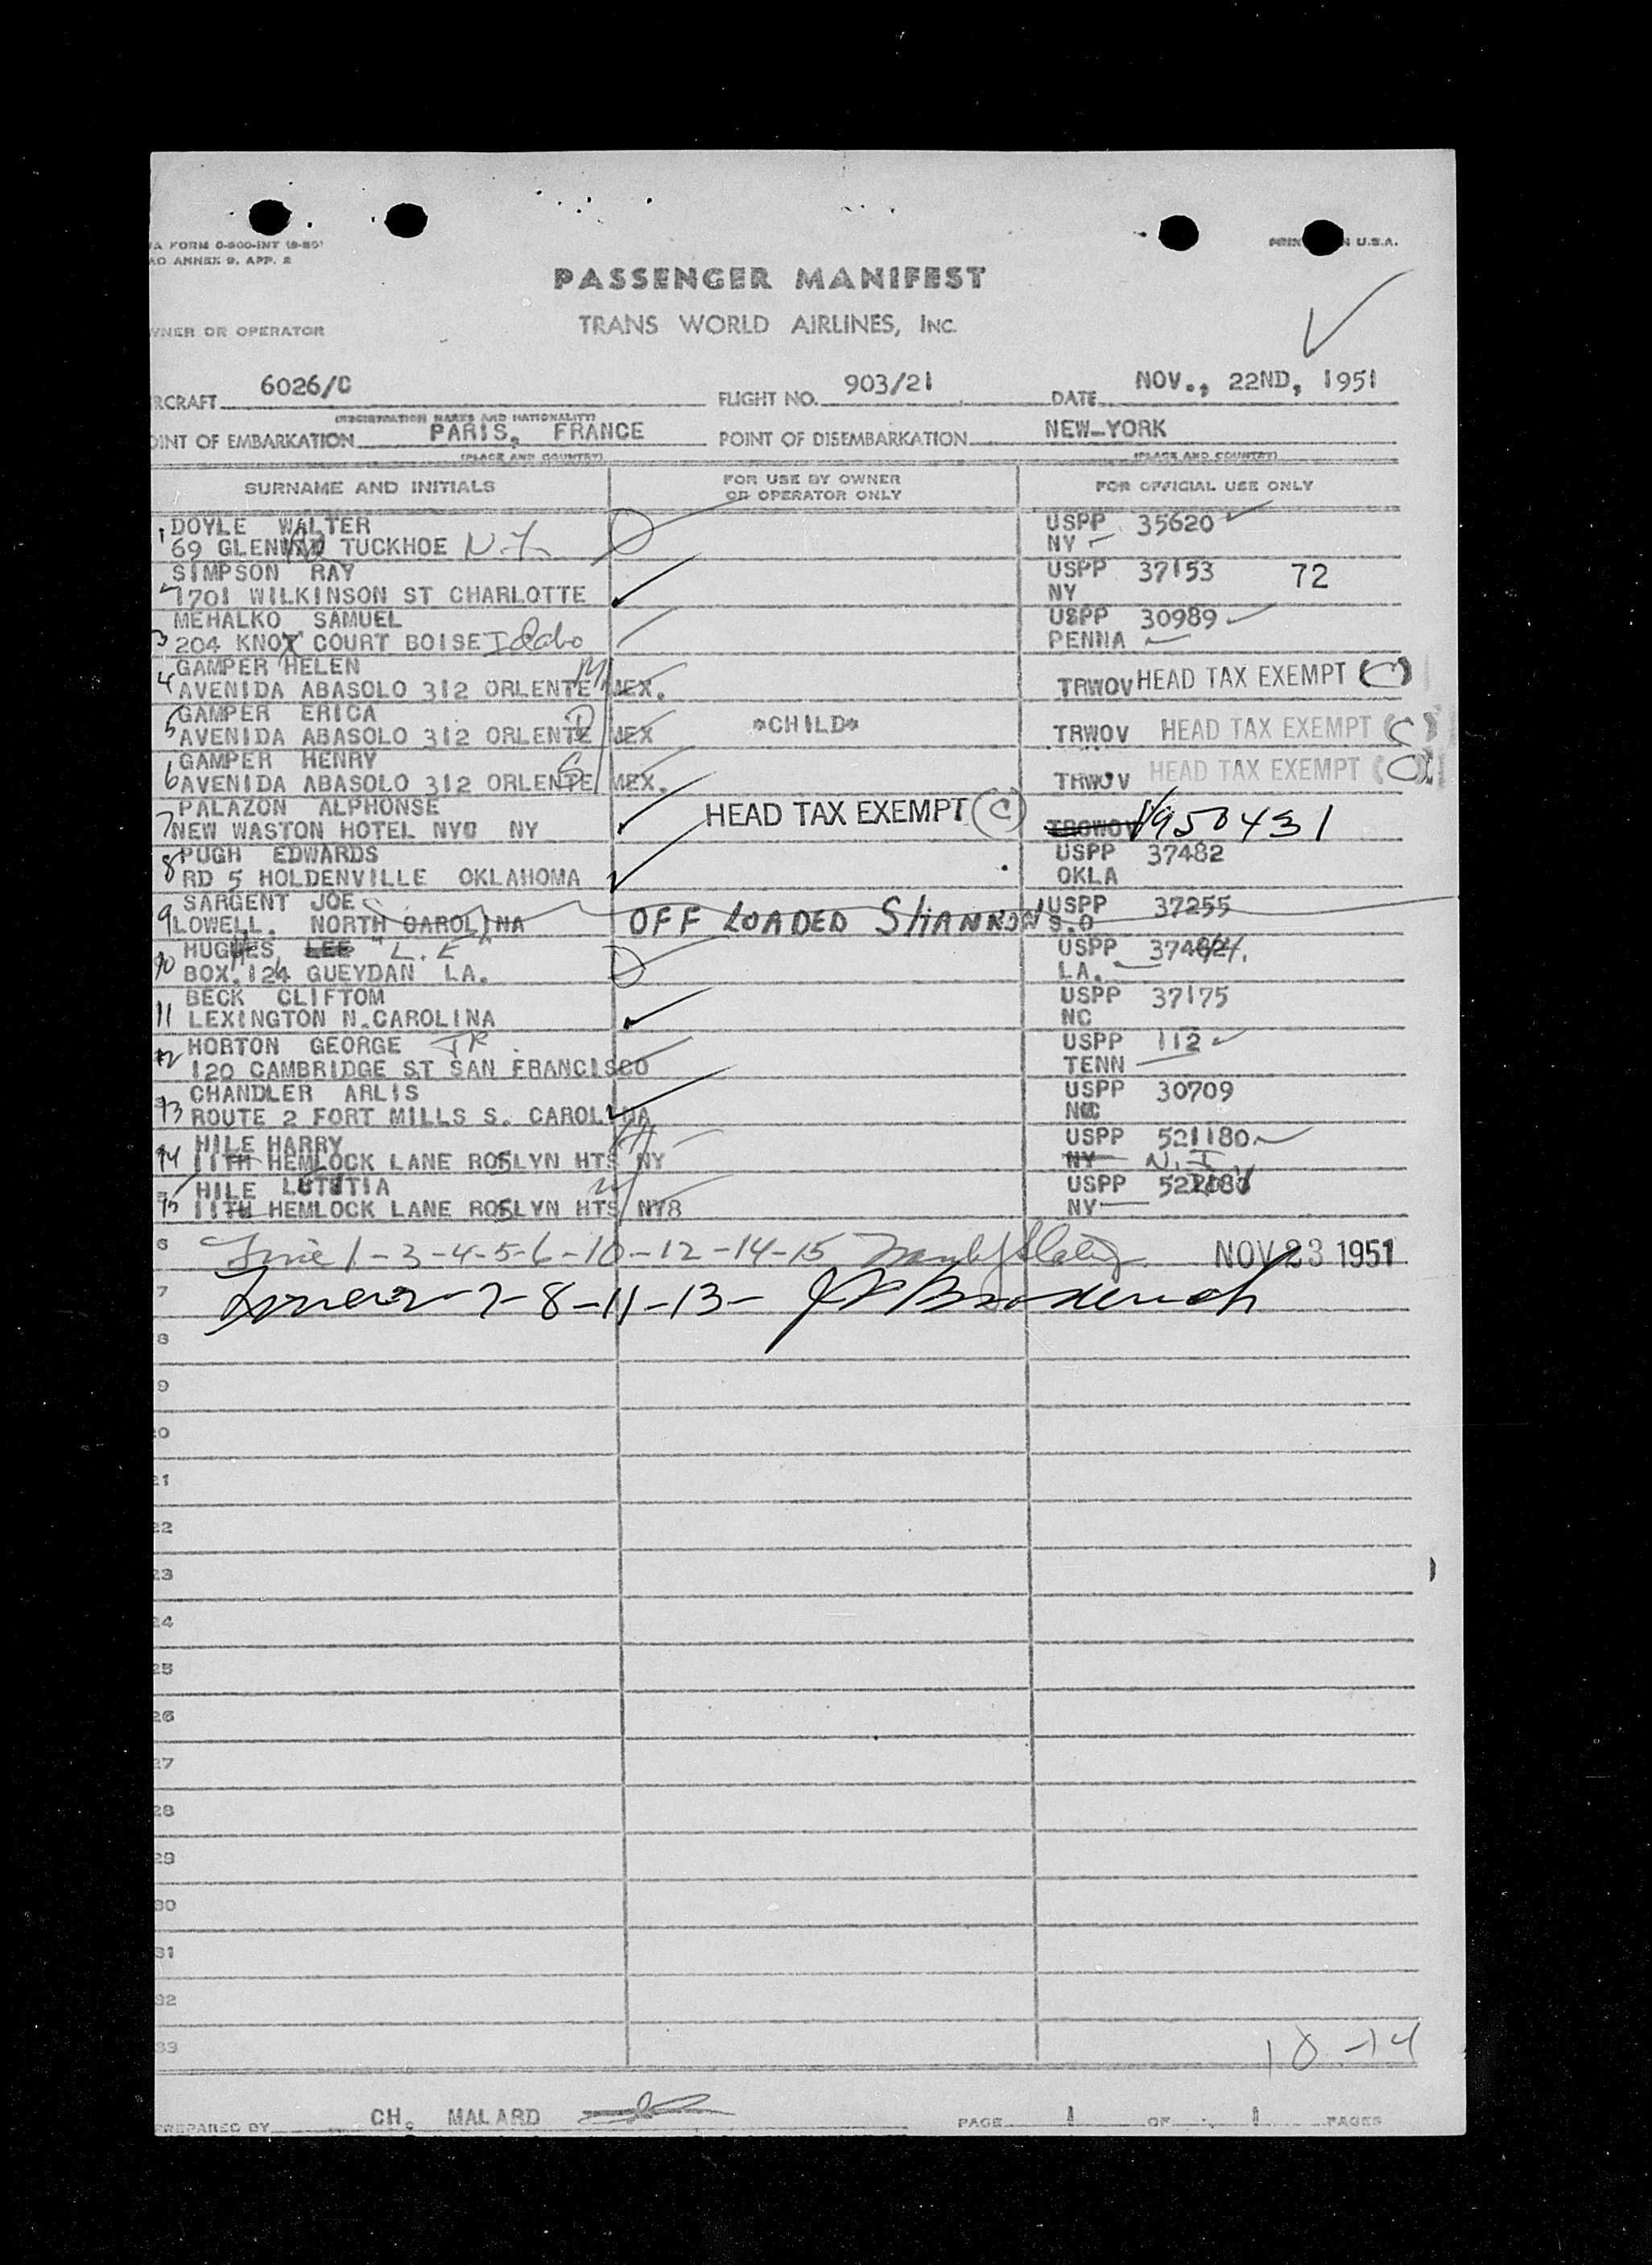 A FORM 0-800-INT (8-50)
AO ANNEX 9, APP. 2
U.S.A.
PASSENGER MANIFEST
WNER OR OPERATOR
TRANS WORLD AIRLINES, INC.
RCRAFT 6026/C FLIGHT NO. 903/21 DATE NOV., 22ND, 1951
(REGISTRATION MARKS AND NATIONALITY)
OINT OF EMBARKATION PARIS, FRANCE POINT OF DISEMBARKATION NEW-YORK
(PLACE AND COUNTRY) (PLACE AND COUNTRY)
SURNAME AND INITIALS FOR USE BY OWNER OR OPERATOR ONLY FOR OFFICIAL USE ONLY
1 DOYLE WALTER USPP 35620
69 TUCKHOE N.Y. NY
SIMPSON RAY USPP 37153 72
1701 WILKINSON ST CHARLOTTE NY
MEHALKO SAMUEL USPP 30989
3 204 KNOX COURT BOISE Idaho PENNA
GAMPER HELEN M
4 AVENIDA ABASOLO 312 ORLENTE MEX. TRWOV HEAD TAX EXEMPT (C)
GAMPER ERICA D *CHILD*
5 AVENIDA ABASOLO 312 ORLENTE MEX TRWOV HEAD TAX EXEMPT (C)
GAMPER HENRY S
6 AVENIDA ABASOLO 312 ORLENTE MEX. TRWOV HEAD TAX EXEMPT (C)
PALAZON ALPHONSE HEAD TAX EXEMPT (C)
7 NEW WASTON HOTEL NYC NY TROWOV V950431
8 PUGH EDWARDS USPP 37482
RD 5 HOLDENVILLE OKLAHOMA OKLA
SARGENT JOE USPP 37255
9 LOWELL. NORTH CAROLINA OFF LOADED SHANNON S.O
HUGHES, LEE "L. E" USPP
10 BOX.124 GUEYDAN LA. LA.
BECK CLIFTOM USPP 37175
11 LEXINGTON N.CAROLINA NC
12 HORTON GEORGE JR. USPP 112
120 CAMBRIDGE ST SAN FRANCISCO TENN
CHANDLER ARLIS USPP 30709
13 ROUTE 2 FORT MILLS S. CAROLINA NC
HILE HARRY H USPP 521180
14 11TH HEMLOCK LANE ROSLYN HTS NY NY
HILE LUTETIA W USPP
15 11TH HEMLOCK LANE ROSLYN HTS NY8 NY
6 Line 1-3-4-5-6-10-12-14-15 NOV 23 1951
7 7-8-11-13-
8
9
20
21
22
23
24
25
26
27
28
29
30
31
32
33
10-14
PREPARED BY CH. MALARD PAGE 1 OF 1 PAGES